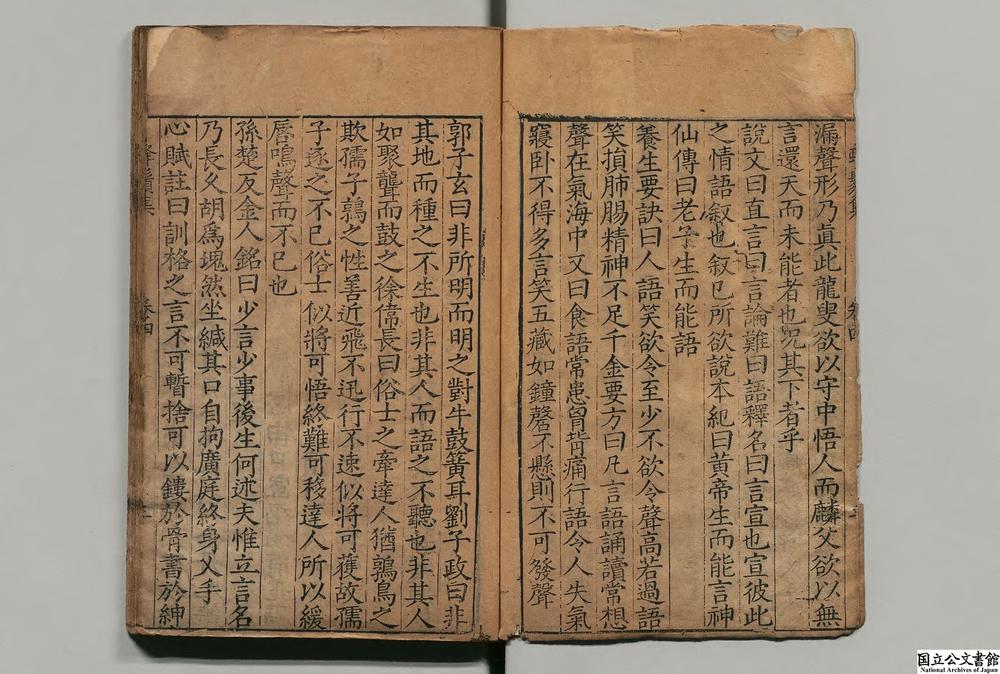 漏聲形乃真此龍叟欲以守中悟人而麟父欲以無
言還天而未能者也况其下者乎
說文曰直言曰言論難曰語釋名曰言宣也宣彼此
之情語叙也叙已所欲說本紀曰黃帝生而能言神
仙傳曰老子生而能語
養生要訣曰人語笑欲令至少不欲令聲高若過語
笑損肺腸精神不足千金要方曰凡言語誦讀常想
聲在氣海中又曰食語常患胷背痛行語令人失氣
寢卧不得多言笑五藏如鐘磬不懸則不可發聲
郭子玄曰非所明而明之對牛鼓簧耳劉子政曰非
其地而種之不生也非其人而語之不聽也非其人
如聚聾而鼓之徐偉長曰俗士之牽達人猶鶉鳥之
欺孺子鶉之性善近飛不迅行不速似將可獲故孺
子逐之不已俗士似將可悟終難可移達人所以緩
唇鳴聲而不已也
孫楚反金人銘曰少言少事後生何述夫惟立言名
乃長久胡爲塊然坐緘其口自拘廣庭終身乂手
心賦註曰訓格之言不可暫捨可以鏤於骨書於紳
卷四
國立公文書館
National Archives of Japan